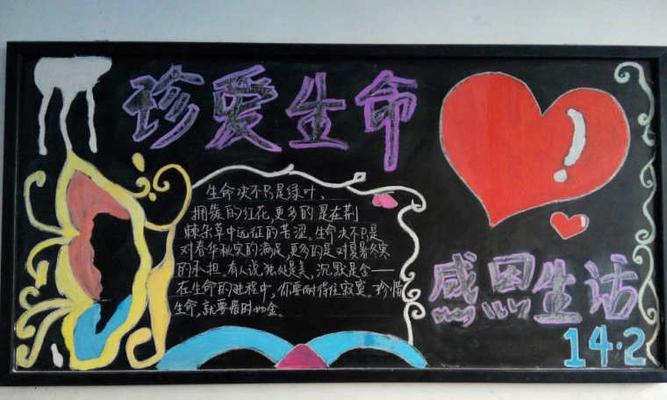 珍爱生命
生命决不只是绿叶、
拥簇的红花,更多的是在荆
棘杂草中远征的苦涩,生命决不只是
对春华秋实的满足,更多的是对夏暑冬寒
的承担.有人说:独处是美、沉默是金——
在生命的进程中,你要耐得住寂寞。珍惜
生命,就要惜时如金。
感恩生活
14·2